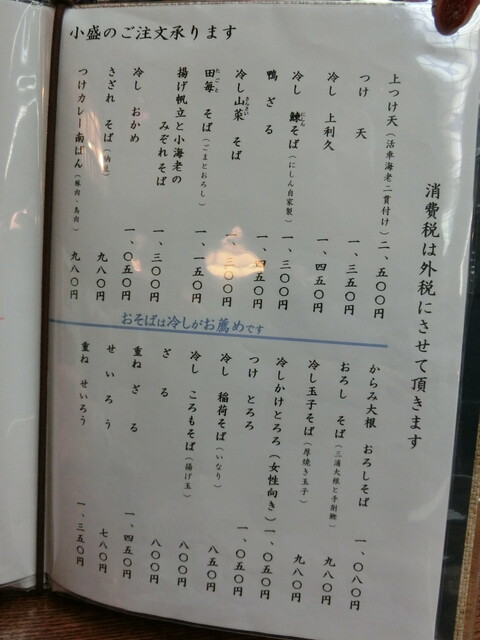 小盛のご注文承ります
消費税は外税にさせて頂きます
上つけ天(活車海老二貫付け)二、五〇〇円
つけ 天 一、三五〇円
冷し 上利久 一、四五〇円
冷し 鰊そば(にしん自家製) 一、三〇〇円
鴨 ざ る 一、四五〇円
冷し山菜 そば 一、三〇〇円
田毎 そば(ごまとおろし) 一、一五〇円
揚げ帆立と小海老の
みぞれそば 一、三〇〇円
冷し おかめ 一、〇五〇円
さざれ そば 九八〇円
つけカレー南ばん(豚肉・鳥肉) 九八〇円
おそばは冷しがお薦めです
からみ大根 おろしそば 一、〇八〇円
おろし そば(三浦大根と手削鰹) 九八〇円
冷し玉子そば(厚焼き玉子) 九八〇円
冷しかけとろろ(女性向き)一、〇五〇円
つけ とろろ 一、〇五〇円
冷し 稲荷そば(いなり) 八五〇円
冷し ころもそば(揚げ玉) 八〇〇円
ざ る 八〇〇円
重ね ざ る 一、四五〇円
せ い ろ う 七八〇円
重ね せいろう 一、三五〇円